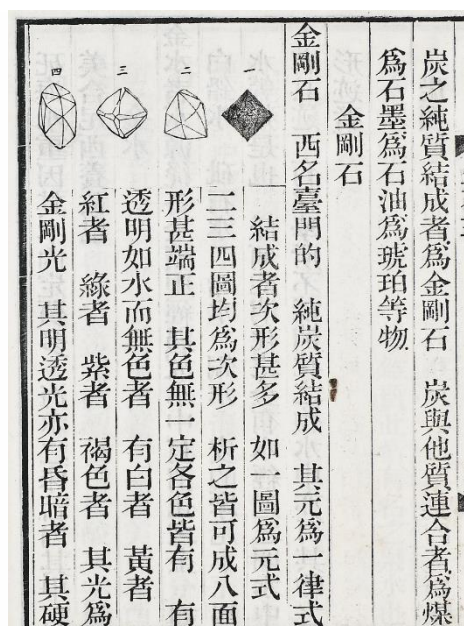 炭之純質結成者爲金剛石　炭與他質連合者爲煤
爲石墨爲石油爲琥珀等物
金剛石
金剛石　西名臺門的　純炭質結成　其元爲一律式
一
二
三
四
結成者次形甚多　如　圖爲元式
二三四圖均爲次形　析之皆可成八面
形甚端正　其色無一定各色皆有　有
透明如水而無色者　有白者　黃者
紅者　綠者　紫者　褐色者　其光爲
金剛光　其明透光亦有昏暗者　其硬